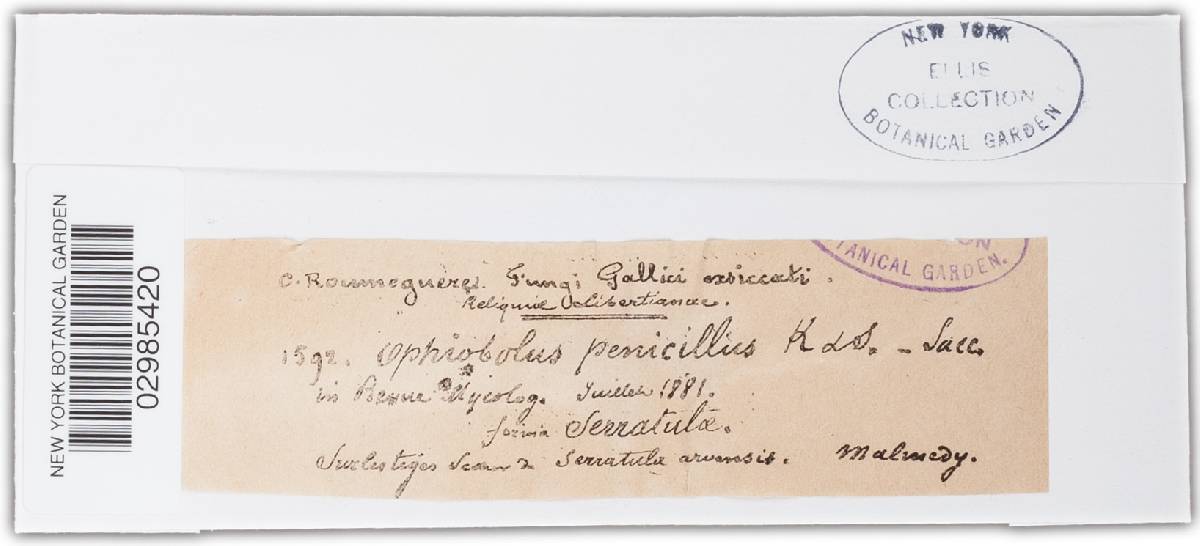 NEW YORK
ELLIS
COLLECTION
BOTANICAL GARDEN
NEW YORK BOTANICAL GARDEN
02985420
TANICAL GARDEN.
C. Roumeguere. Fungi Gallici exsiccati.
Reliquiae Libertianae.
1592. Ophiobolus penicillus K & S. - Sacc.
in Revue Mycolog. Juillet 1881.
forma Serratulæ.
Sur les tiges Serratula arvensis. Malmedy.